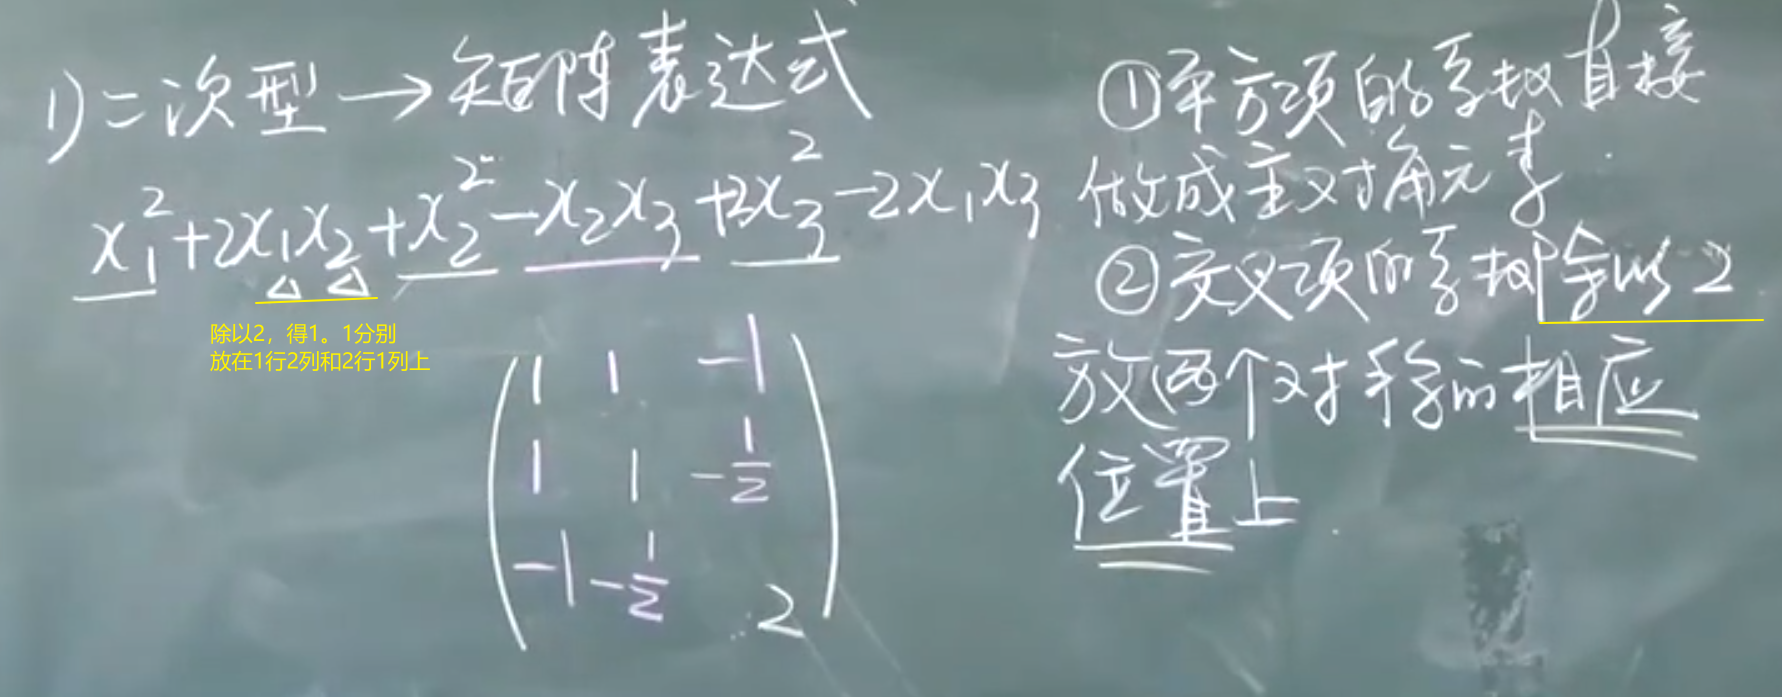 1) 二次型→矩阵表达式
x₁²+2x₁x₂+x₂²-x₂x₃+2x₃²-2x₁x₃
除以2，得1。1分别
放在1行2列和2行1列上
1 1 -1
1 1 -1/2
-1 -1/2 2
①平方项的系数直接
做成主对角元素.
②交叉项的系数除以2
放两个对称的相应
位置上.